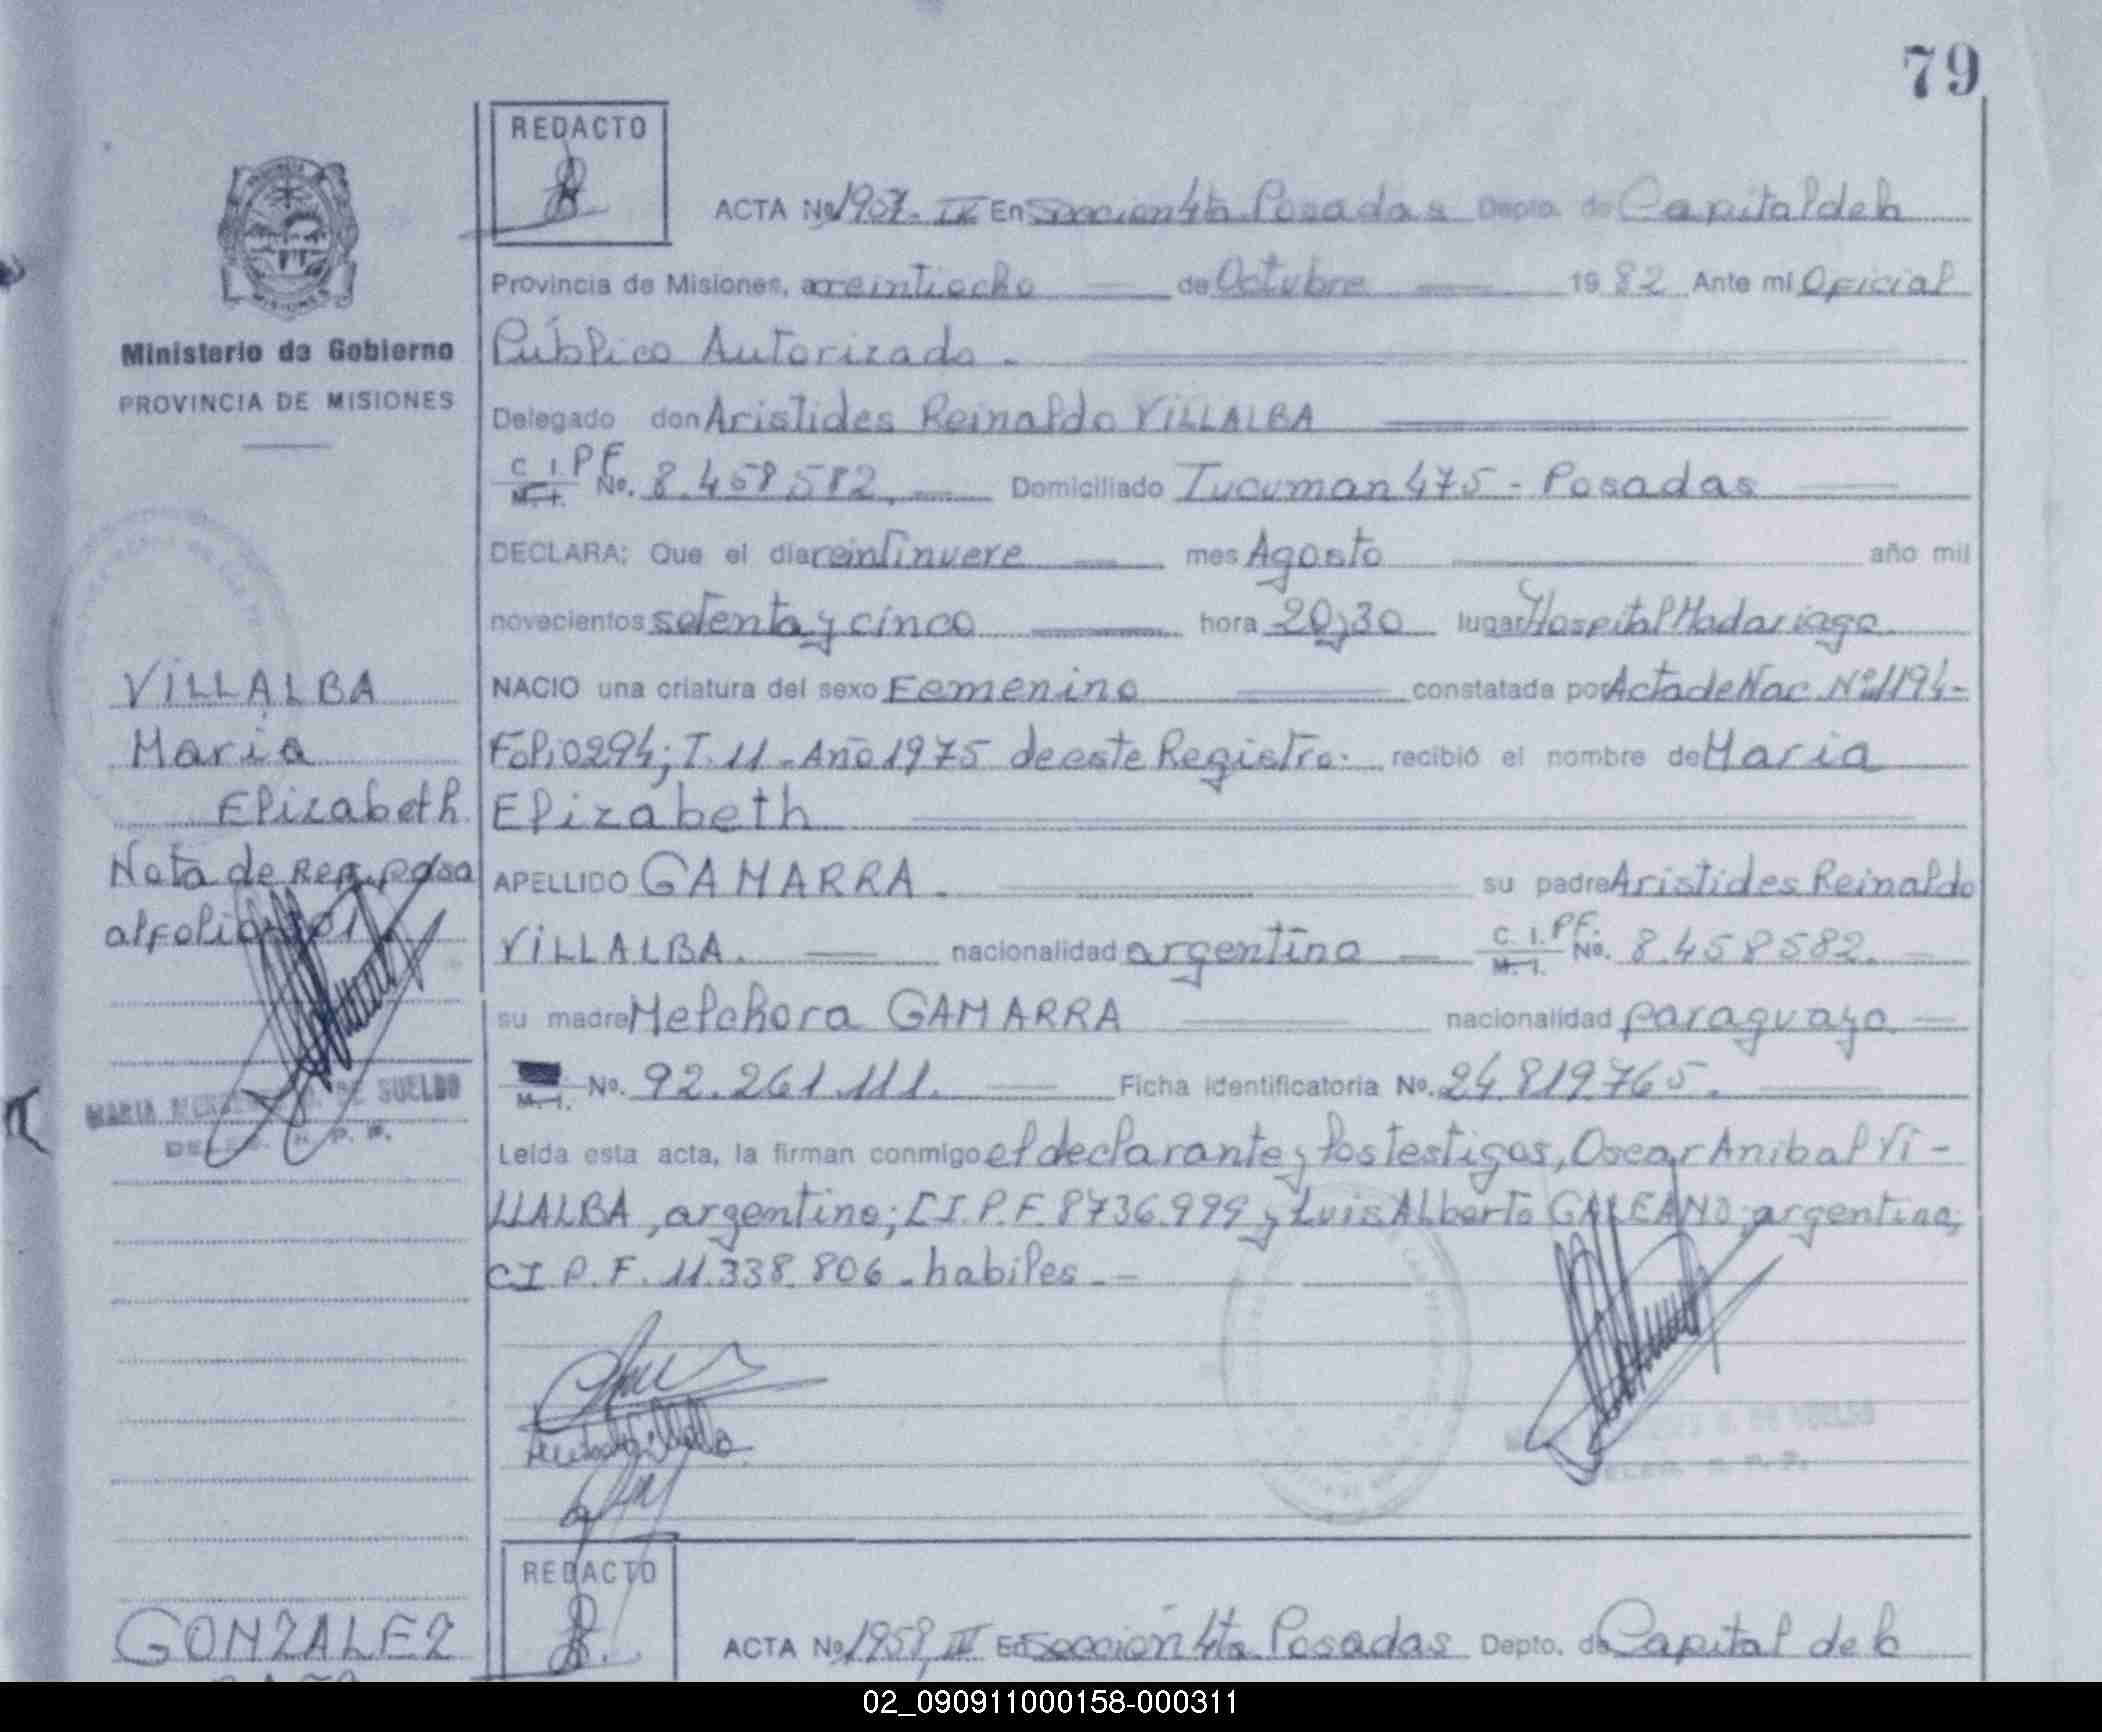 79
REDACTO
ACTA No 1907. IV En Sección 4ta. Posadas Depto. de Capital de la
Provincia de Misiones, a veintiocho de Octubre 1982 Ante mi Oficial
Ministerio de Gobierno
PROVINCIA DE MISIONES
Público Autorizado.
Delegado don Aristides Reinaldo VILLALBA
C. I. P.F. No. 8.458582. Domiciliado Tucuman 475 - Posadas
M. I.
DECLARA: Que el dia veintinueve mes Agosto año mil
novecientos setenta y cinco hora 20,30 lugar Hospital Madariaga
NACIO una criatura del sexo Femenino constatada por Acta de Nac. Nº 1194-
Folio 294; T. 11 - Año 1975 de este Registro. recibió el nombre de Maria
Elizabeth
APELLIDO GAMARRA. su padre Aristides Reinaldo
VILLALBA. nacionalidad argentina C. I. P.F. No. 8.458582.
M. I.
su madre Melchora GAMARRA nacionalidad paraguaya
M. I. No. 92.261.111. Ficha identificatoria No. 24.819765.
Leída esta acta, la firman conmigo el declarante y los testigos, Oscar Anibal VI-
LLALBA, argentino; C.I. P.F. 8736.999 y Luis Alberto GALEANO argentino,
CI P.F. 11.338.806 - habiles -
VILLALBA
Maria
Elizabeth
Nota de Rep. pasa
al folio
MARIA DE SUELDO
DE SUELDO
REDACTO
GONZALEZ
ACTA No 1958, IV En Sección 4ta. Posadas Depto. de Capital de la
02_090911000158-000311